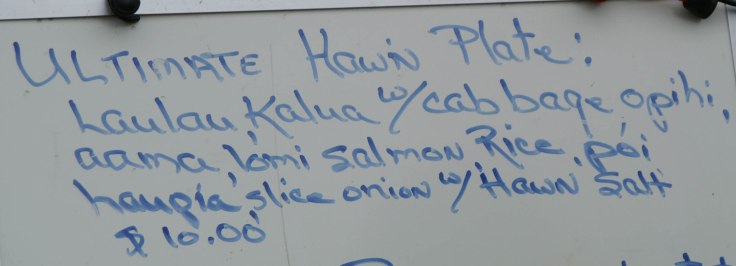 ULTIMATE Hawn Plate:
Laulau, Kalua w/cabbage opihi,
aama, lomi salmon Rice, poi
haupia, slice onion w/ Hawn Salt
$10.00